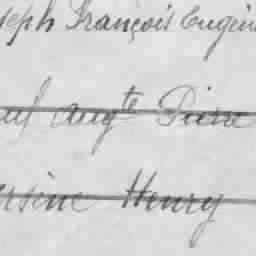 seph François Eugène
aul Aug.te Pierre
rsène Henry